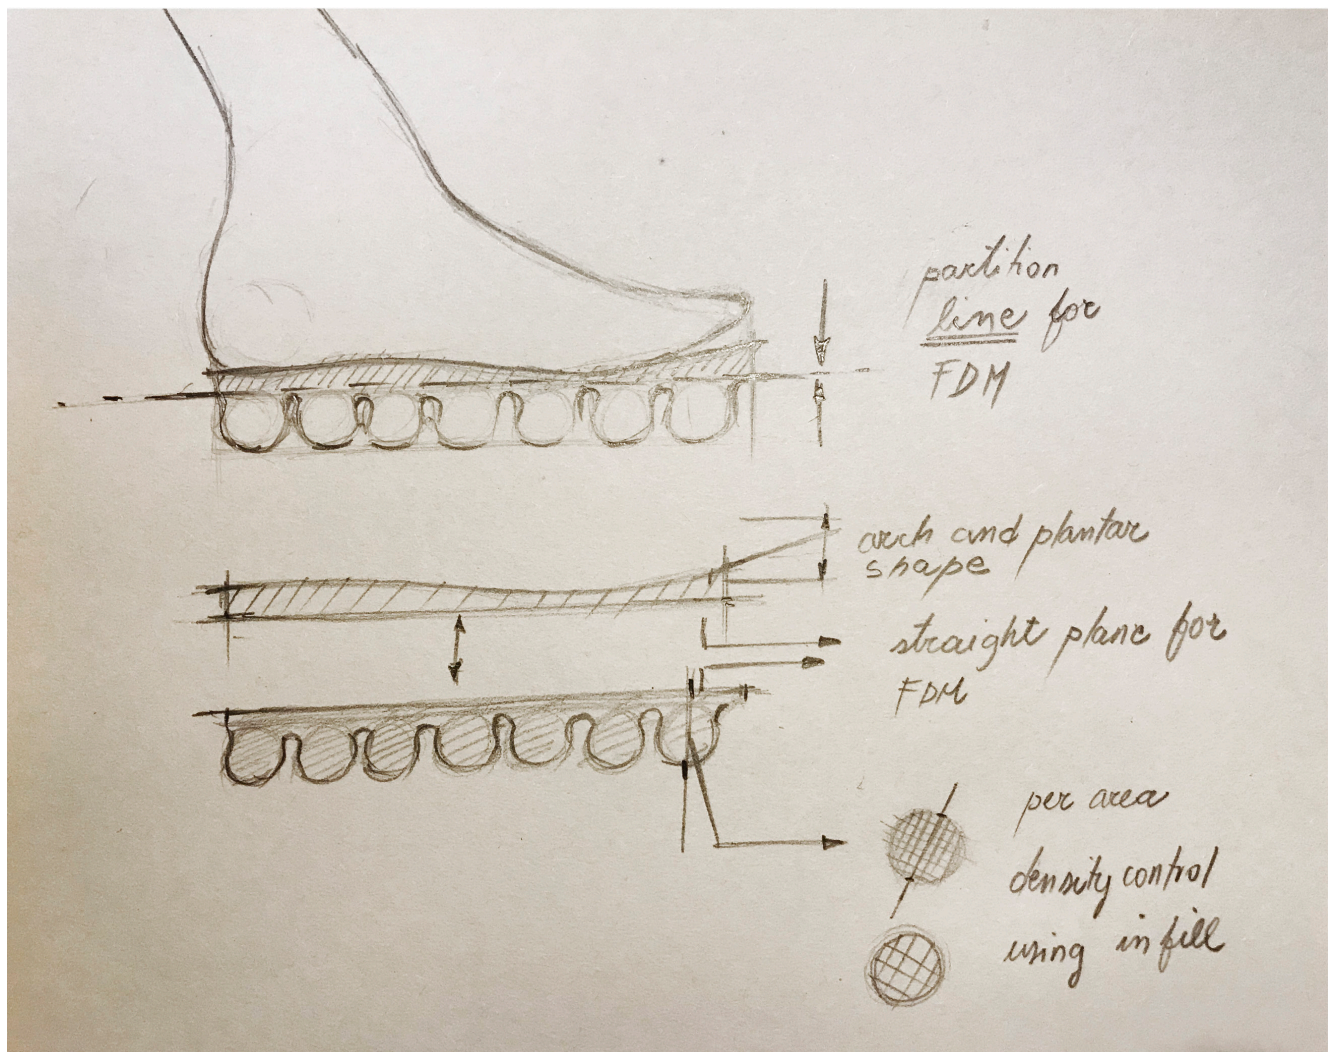 partition
line for
FDM
arch and plantar
shape
straight plane for
FDM
per area
density control
using infill